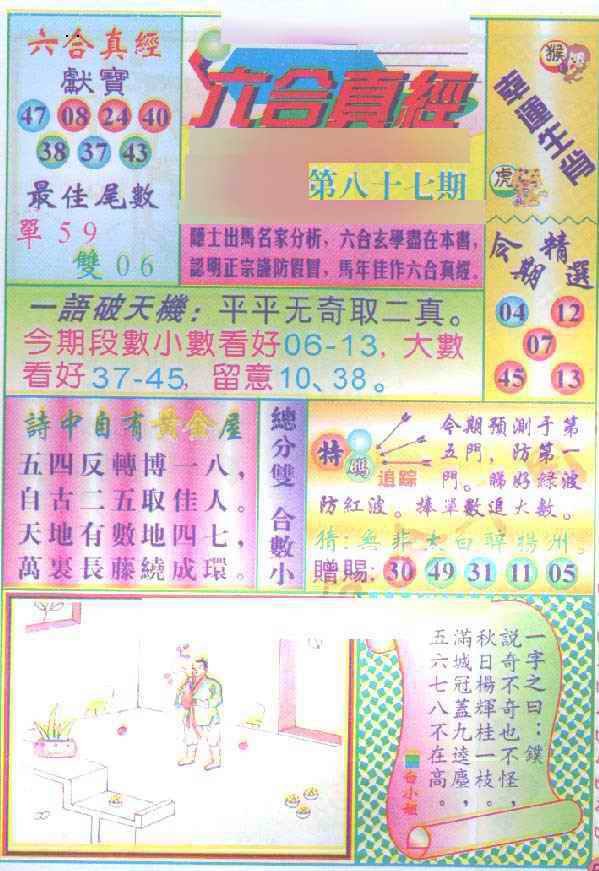 六合真經
獻寶
47 08 24 40
38 37 43
最佳尾數
單59
雙06
六合真經
第八十七期
隱士出馬名家分析，六合玄學盡在本書，
認明正宗謹防假冒，馬年佳作六合真經。
猴
幸運生肖
虎
今期精選
04 12
07
45 13
一語破天機：平平无奇取二真。
今期段數小數看好06-13，大數
看好37-45，留意10、38。
詩中自有黃金屋
五四反轉博一八，
自古二五取佳人。
天地有數地四七，
萬裏長藤繞成環。
總分雙 合數小
特碼
追踪
今期預測于第
五門，防第一
門。睇好綠波
防紅波。捧單數追大數。
猜：無非太白醉揚洲。
贈賜：30 49 31 11 05
一字之曰：鏷
說奇不奇也不怪，
秋日楊輝桂一枝。
滿城冠蓋九逵塵，
五六七八不在高。
白小姐